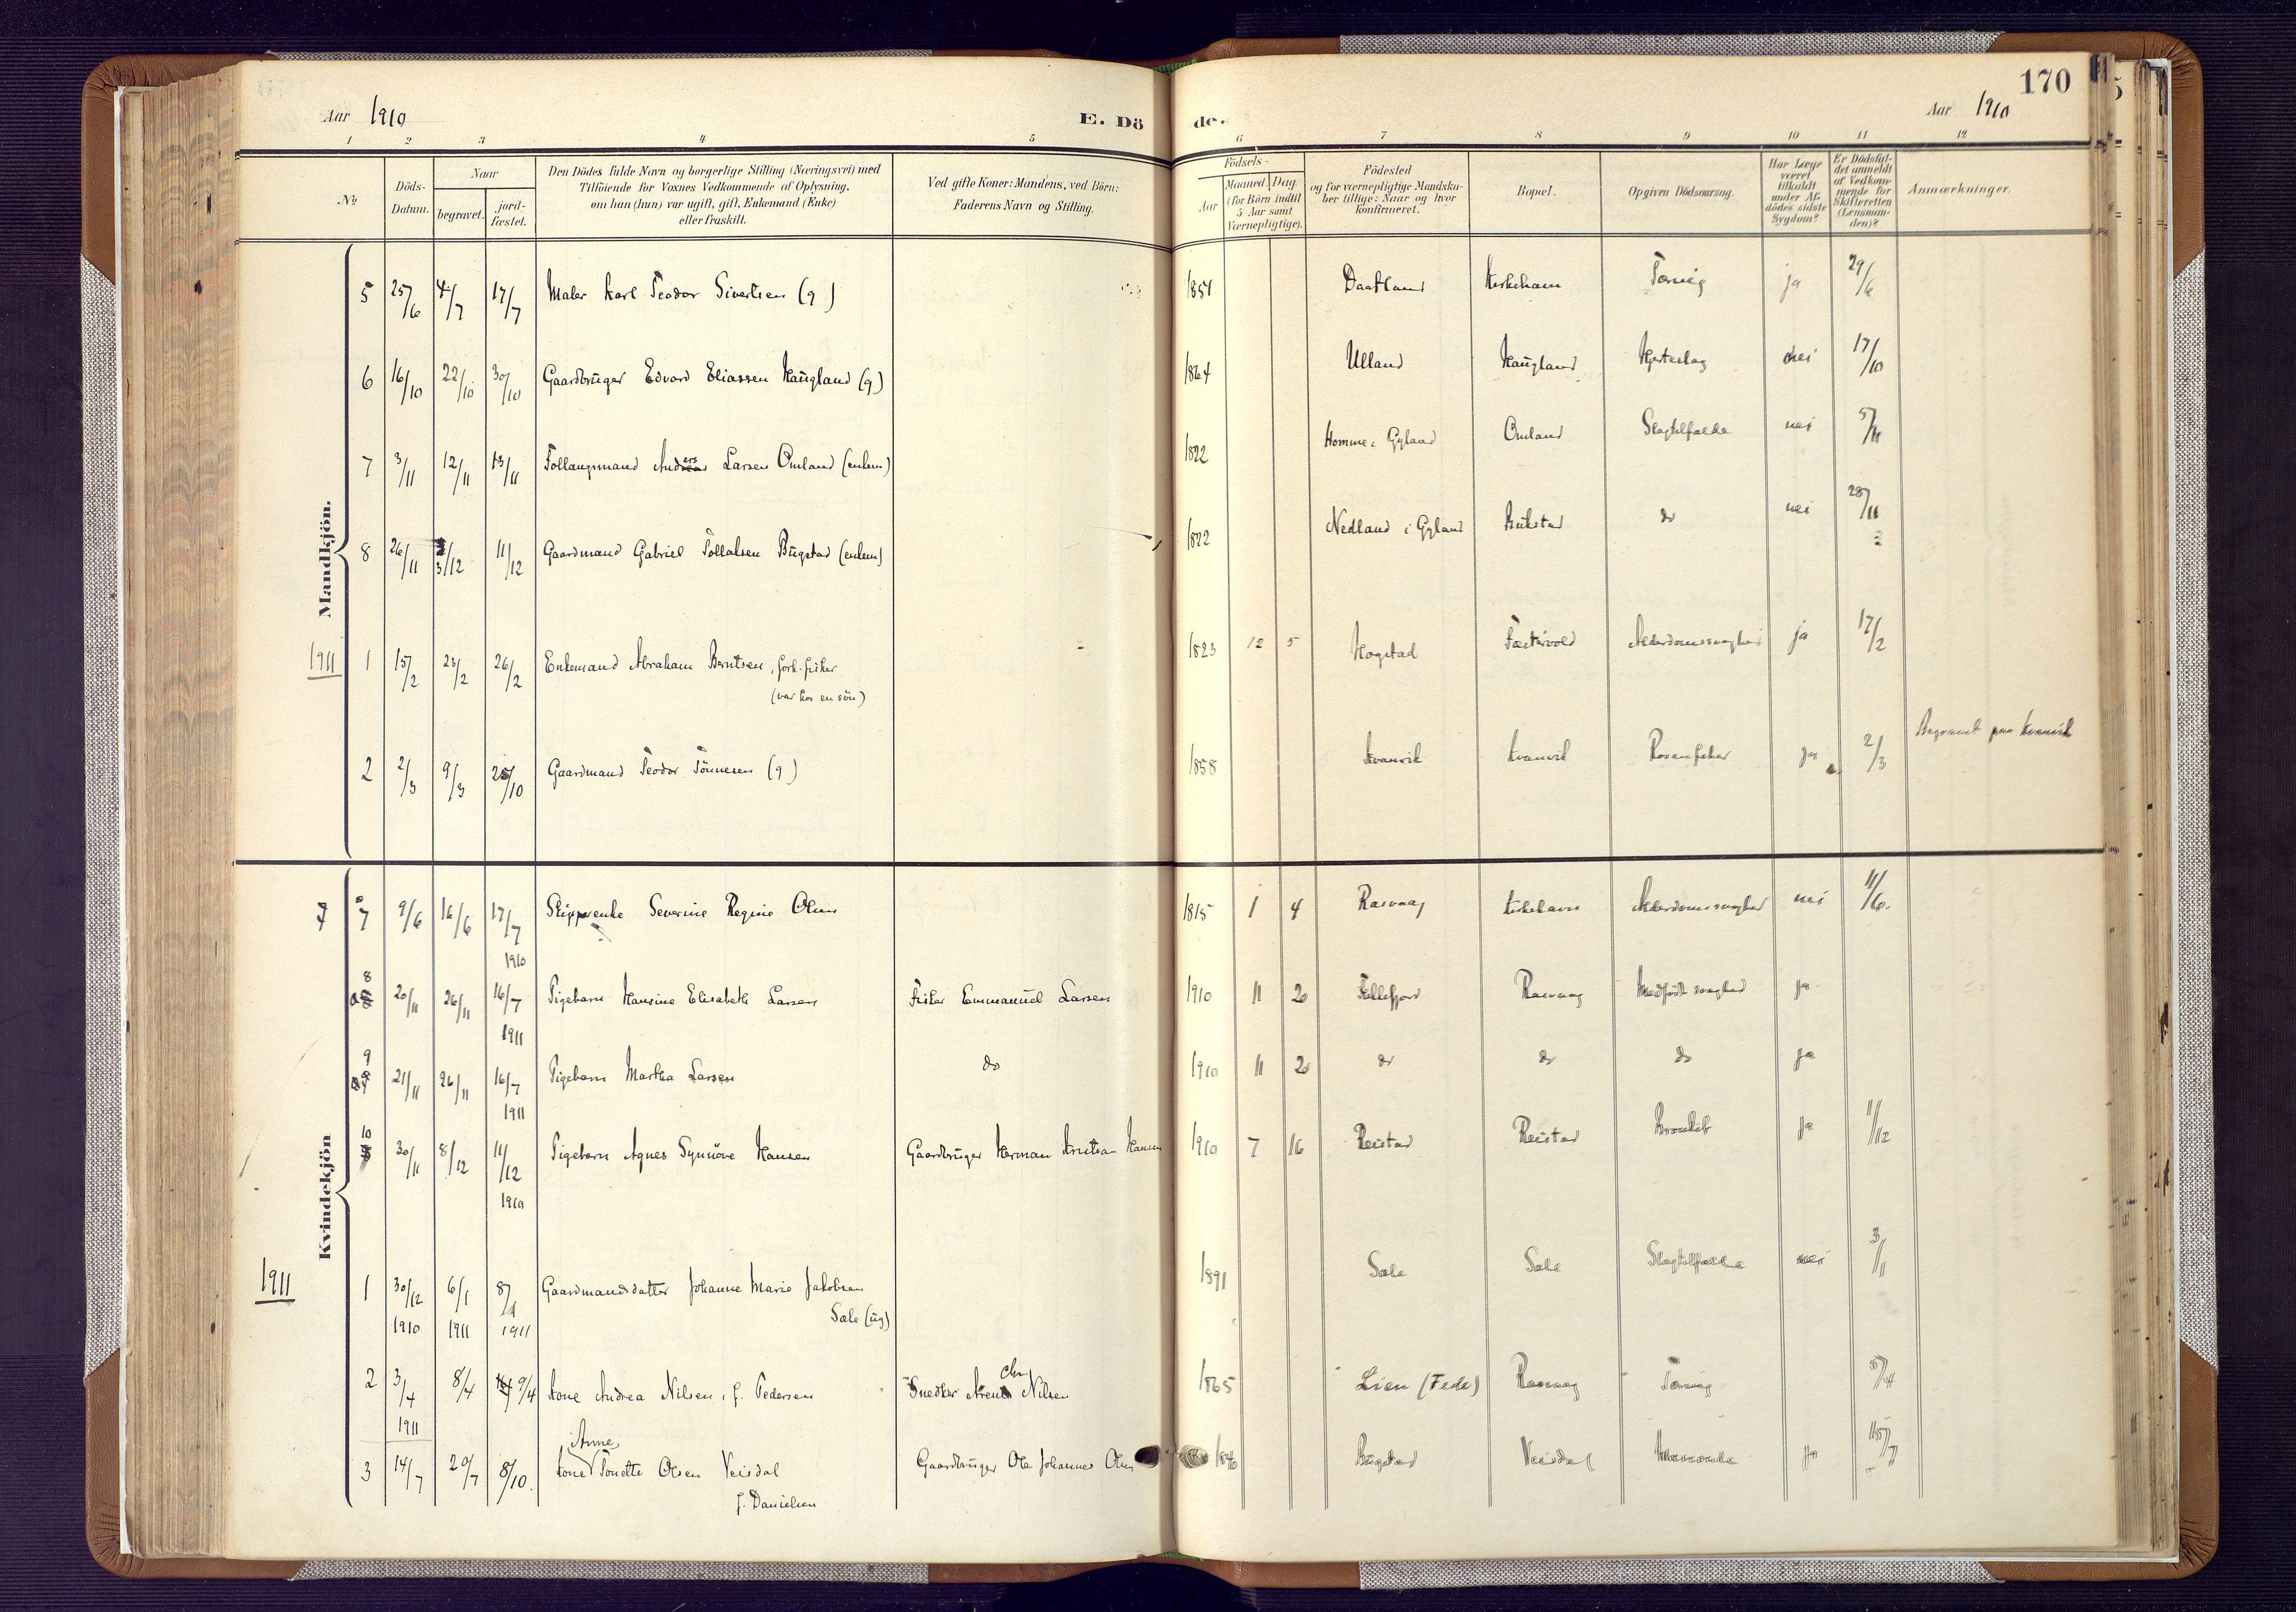 170
Aar 1910
E. Dö de.
Aar 1910
1 2 3 4 5 6 7 8 9 10 11 12
No.
Döds-Datum.
Naar
begravet.
jord-fæstet.
Den Dödes fulde Navn og borgerlige Stilling (Næringsvei) med
Tilföiende for Voxnes Vedkommende af Oplysning,
om han (hun) var ugift, gift, Enkemand (Enke)
eller fraskilt.
Ved gifte Koner: Mandens, ved Börn:
Faderens Navn og Stilling.
Födsels-
Aar
Maaned. Dag.
(for Börn indtil
5 Aar samt
Værnepligtige).
Födested
og for værnepligtige Mandska-
ber tillige: Naar og hvor
konfirmeret.
Bopæl.
Opgiven Dödsaarsag.
Har Læge
været
tilkaldt
under Af-
dödes sidste
Sygdom?
Er Dödsfal-
det anmeldt
af Vedkom-
mende for
Skifteretten
(Lensman-
den)?
Anmærkninger.
Mandkjön.
5 25/6 4/7 17/7 Maler Karl Teodor Sivertsen (g) 1851 Daatland Kirkehavn Tæring ja 29/6
6 16/10 22/10 30/10 Gaardbruger Edvard Eliassen Haugland (g) 1864 Ulland Haugland Hjerteslag nei 17/10
7 3/11 12/11 13/11 Follaugsmand Anders Larsen Omland (enkem) 1822 Homme i Gyland Omland Slagtilfælde nei 5/11
8 26/11 3/12 11/12 Gaardmand Gabriel Tollaksen Bugstad (enkem) 1822 Nedland i Gyland do nei 28/11
1911
1 15/2 23/2 26/2 Enkemand Abraham Berntsen, forh. fisker 1823 12 5 Hogstad Alderdomssvaghed ja 17/2
(var hos en søn)
2 2/3 9/3 25/10 Gaardmand Teodor Tönnesen (g) 1858 Kvanvik Kvanvik Rosenfeber ja 2/3 Begravet paa Kvanvik
Kvindekjön
7 9/6 16/6 17/7 1910 Skipperenke Severine Regine Olsen 1815 1 4 Rasvaag Kirkehavn Alderdomssvaghed nei 11/6.
8 20/11 26/11 16/7 1911 Pigebarn Hansine Elisabeth Larsen Fisker Emmanuel Larsen 1910 11 20 Fellefjord Rasvaag Medfødt svaghed ja
9 21/11 26/11 16/7 1911 Pigebarn Martha Larsen do 1910 11 20 do do do ja
10 30/11 8/12 11/12 1910 Pigebarn Agnes Synnöve Hansen Gaardbruger Herman Kristian Hansen 1910 7 16 Reistad Reistad Bronkit ja 1/12
1911
1 30/12 1910 6/1 1911 8/1 1911 Gaardmandsdatter Johanne Marie Jakobsen 1891 Sæle Sæle Slagtilfælde nei 3/1
Sæle (ug)
2 3/4 1911 8/4 9/4 Kone Andrea Nilsen, f. Pedersen Snedker Chr Nilsen 1865 Lien (Fede) Rasvaag Tæring 5/4
3 14/7 20/7 8/10. Kone Anne Tonette Olsen Veisdal Gaardbruger Ole Johannes Olsen 1846 Bugstad Veisdal ja 15/7
f. Danielsen